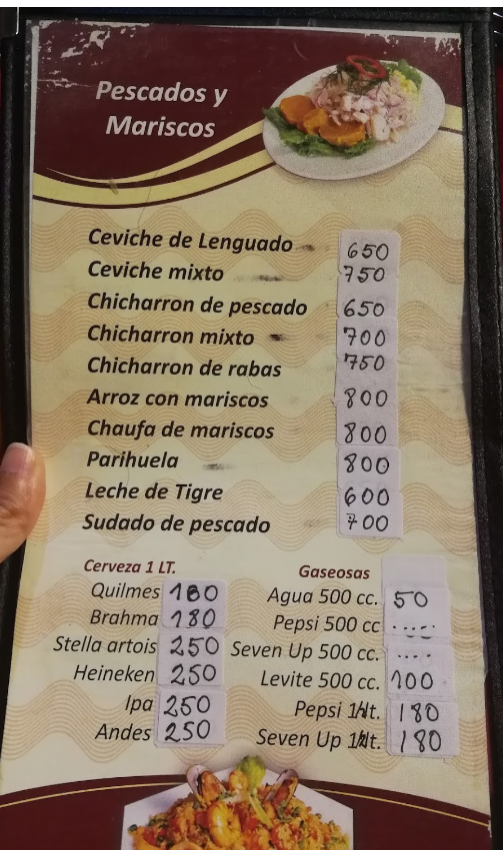 Pescados y
Mariscos
Ceviche de Lenguado 650
Ceviche mixto 750
Chicharron de pescado 650
Chicharron mixto 700
Chicharron de rabas 750
Arroz con mariscos 800
Chaufa de mariscos 800
Parihuela 800
Leche de Tigre 600
Sudado de pescado 700
Cerveza 1 LT.
Quilmes 180
Brahma 180
Stella artois 250
Heineken 250
Ipa 250
Andes 250
Gaseosas
Agua 500 cc. 50
Pepsi 500 cc ....
Seven Up 500 cc. ....
Levite 500 cc. 100
Pepsi 1 lt. 180
Seven Up 1 lt. 180